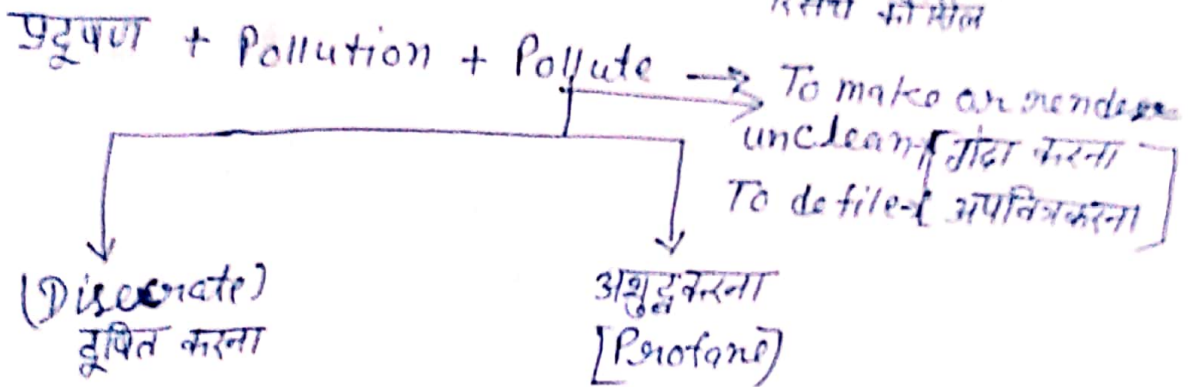 की मील
प्रदूषण + Pollution + Pollute → To make or render
unclean [गंदा करना
To defile [अपवित्र करना]
(Disecrate)
दूषित करना
अशुद्ध करना
[Profane]